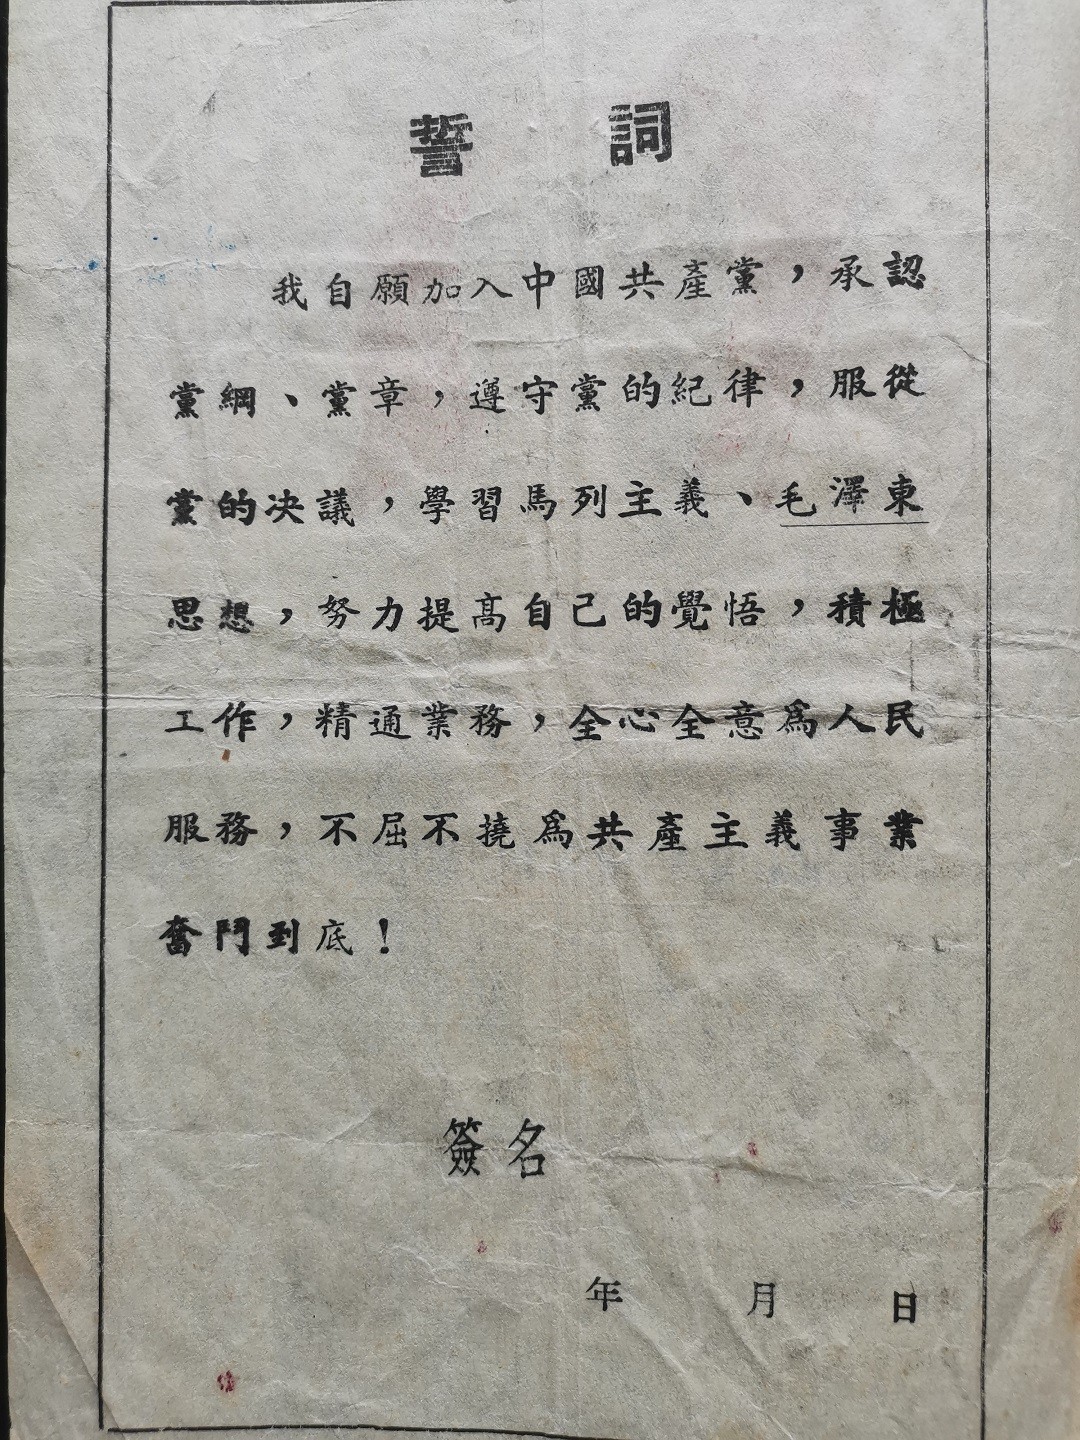 誓詞
我自願加入中國共產黨，承認
黨綱、黨章，遵守黨的紀律，服從
黨的决議，學習馬列主義、毛澤東
思想，努力提高自己的覺悟，積極
工作，精通業務，全心全意爲人民
服務，不屈不撓爲共產主義事業
奮鬥到底！
簽名
年 月 日